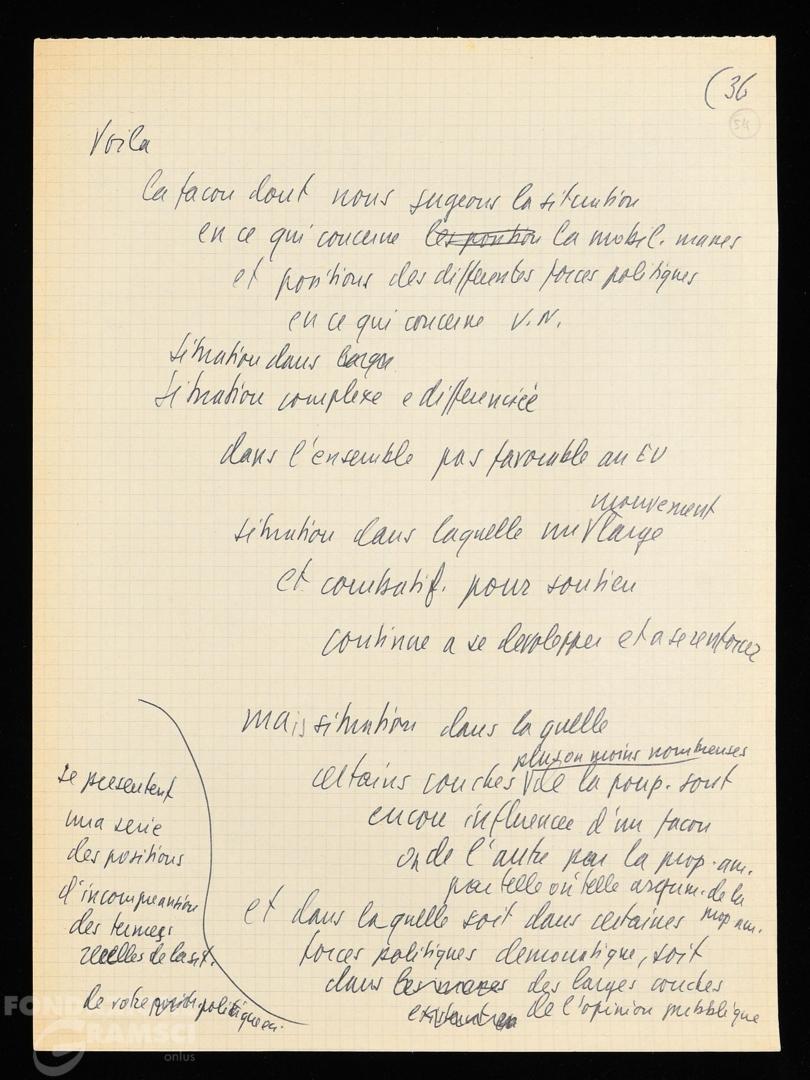 (36
54
Voila
la facon dont nous jugeons la situation
en ce qui concerne les position la mobil. masses
et positions des differentes forces politiques
en ce qui concerne V.N.
situation dans laque
situation complexe e differenciée
dans l'ensemble pas favorable au EU
mouvement
situation dans laquelle un V large
et combatif. pour soutien
continue a se develepper et a se renforcer
mais situation dans laquelle
plus on moins nombreuses
certains couches V de la poup. sont
encore influencée d'un facon
on de l'autre par la prop. am.
par telle ou telle argum. de la
prop am.
et dans laquelle soit dans certaines
forces politiques democratique, soit
dans les masses des larges couches
de l'opinion pubblique
se presentent
una serie
des positions
d'incompreantion
des termes
réelles de la sit.
de votre politique
FONDAZIONE
GRAMSCI
onlus